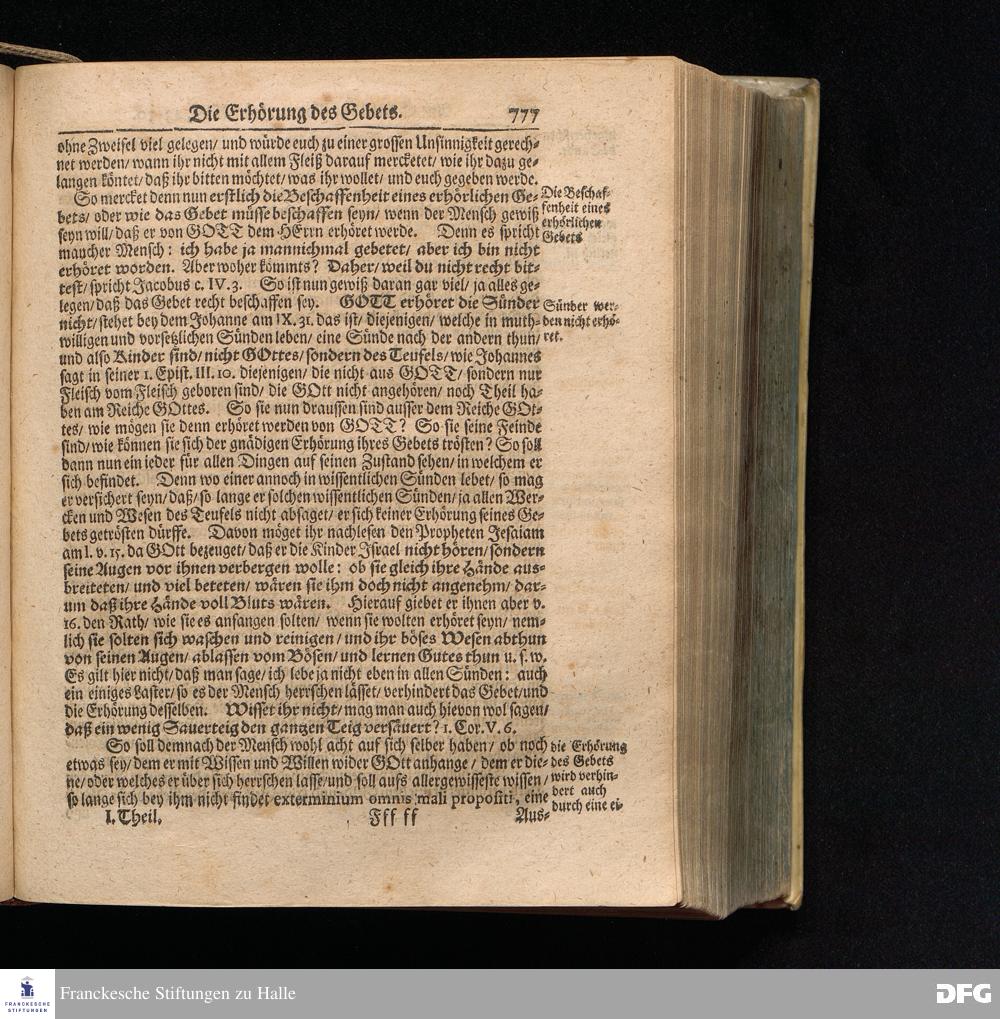 Die Erhörung des Gebets. 777
ohne Zweifel viel gelegen/ und würde euch zu einer grossen Unsinnigkeit gerech-
net werden/ wann ihr nicht mit allem Fleiß darauf mercketet/ wie ihr dazu ge-
langen köntet/ daß ihr bitten möchtet/ was ihr wollet/ und euch gegeben werde.
So mercket denn nun erstlich die Beschaffenheit eines erhörlichen Ge-
bets/ oder wie das Gebet müsse beschaffen seyn/ wenn der Mensch gewiß
seyn will/ daß er von GOTT dem HErrn erhöret werde. Denn es spricht
mancher Mensch: ich habe ja mannichmal gebetet/ aber ich bin nicht
erhöret worden. Aber woher kömmts? Daher/ weil du nicht recht bit-
test/ spricht Jacobus c. IV. 3. So ist nun gewiß daran gar viel/ ja alles ge-
legen/ daß das Gebet recht beschaffen sey. GOTT erhöret die Sünder
nicht/ stehet bey dem Johanne am IX. 31. das ist/ diejenigen/ welche in muth-
willigen und vorsetzlichen Sünden leben/ eine Sünde nach der andern thun/
und also Kinder sind/ nicht GOttes/ sondern des Teufels/ wie Johannes
sagt in seiner 1. Epist. III. 10. diejenigen/ die nicht aus GOTT/ sondern nur
Fleisch vom Fleisch geboren sind/ die GOtt nicht angehören/ noch Theil ha-
ben am Reiche GOttes. So sie nun draussen sind ausser dem Reiche GOt-
tes/ wie mögen sie denn erhöret werden von GOTT? So sie seine Feinde
sind/ wie können sie sich der gnädigen Erhörung ihres Gebets trösten? So soll
dann nun ein ieder für allen Dingen auf seinen Zustand sehen/ in welchem er
sich befindet. Denn wo einer annoch in wissentlichen Sünden lebet/ so mag
er versichert seyn/ daß/ so lange er solchen wissentlichen Sünden/ ja allen Wer-
cken und Wesen des Teufels nicht absaget/ er sich keiner Erhörung seines Ge-
bets getrösten dürffe. Davon möget ihr nachlesen den Propheten Jesaiam
am I. v. 15. da GOtt bezeuget/ daß er die Kinder Israel nicht hören/ sondern
seine Augen vor ihnen verbergen wolle: ob sie gleich ihre Hände aus-
breiteten/ und viel beteten/ wären sie ihm doch nicht angenehm/ dar-
um daß ihre Hände voll Bluts wären. Hierauf giebet er ihnen aber v.
16. den Rath/ wie sie es anfangen solten/ wenn sie wolten erhöret seyn/ nem-
lich sie solten sich waschen und reinigen/ und ihr böses Wesen abthun
von seinen Augen/ ablassen vom Bösen/ und lernen Gutes thun u. s. w.
Es gilt hier nicht/ daß man sage/ ich lebe ja nicht eben in allen Sünden: auch
ein einiges Laster/ so es der Mensch herrschen lässet/ verhindert das Gebet/ und
die Erhörung desselben. Wisset ihr nicht/ mag man auch hievon wol sagen/
daß ein wenig Sauerteig den gantzen Teig versäuert? 1. Cor. V. 6.
So soll demnach der Mensch wohl acht auf sich selber haben/ ob noch
etwas sey/ dem er mit Wissen und Willen wider GOtt anhange/ dem er die-
ne/ oder welches er über sich herrschen lasse/ und soll aufs allergewisseste wissen/
so lange sich bey ihm nicht findet exterminium omnis mali propositi, eine
I. Theil. Fff ff Aus-
Die Beschaf-
fenheit eines
erhörlichen
Gebets
Sünder wer-
den nicht erhö-
ret.
die Erhörung
des Gebets
wird verhin-
dert auch
durch eine ei-
FRANCKESCHE
STIFTUNGEN
Franckesche Stiftungen zu Halle
DFG